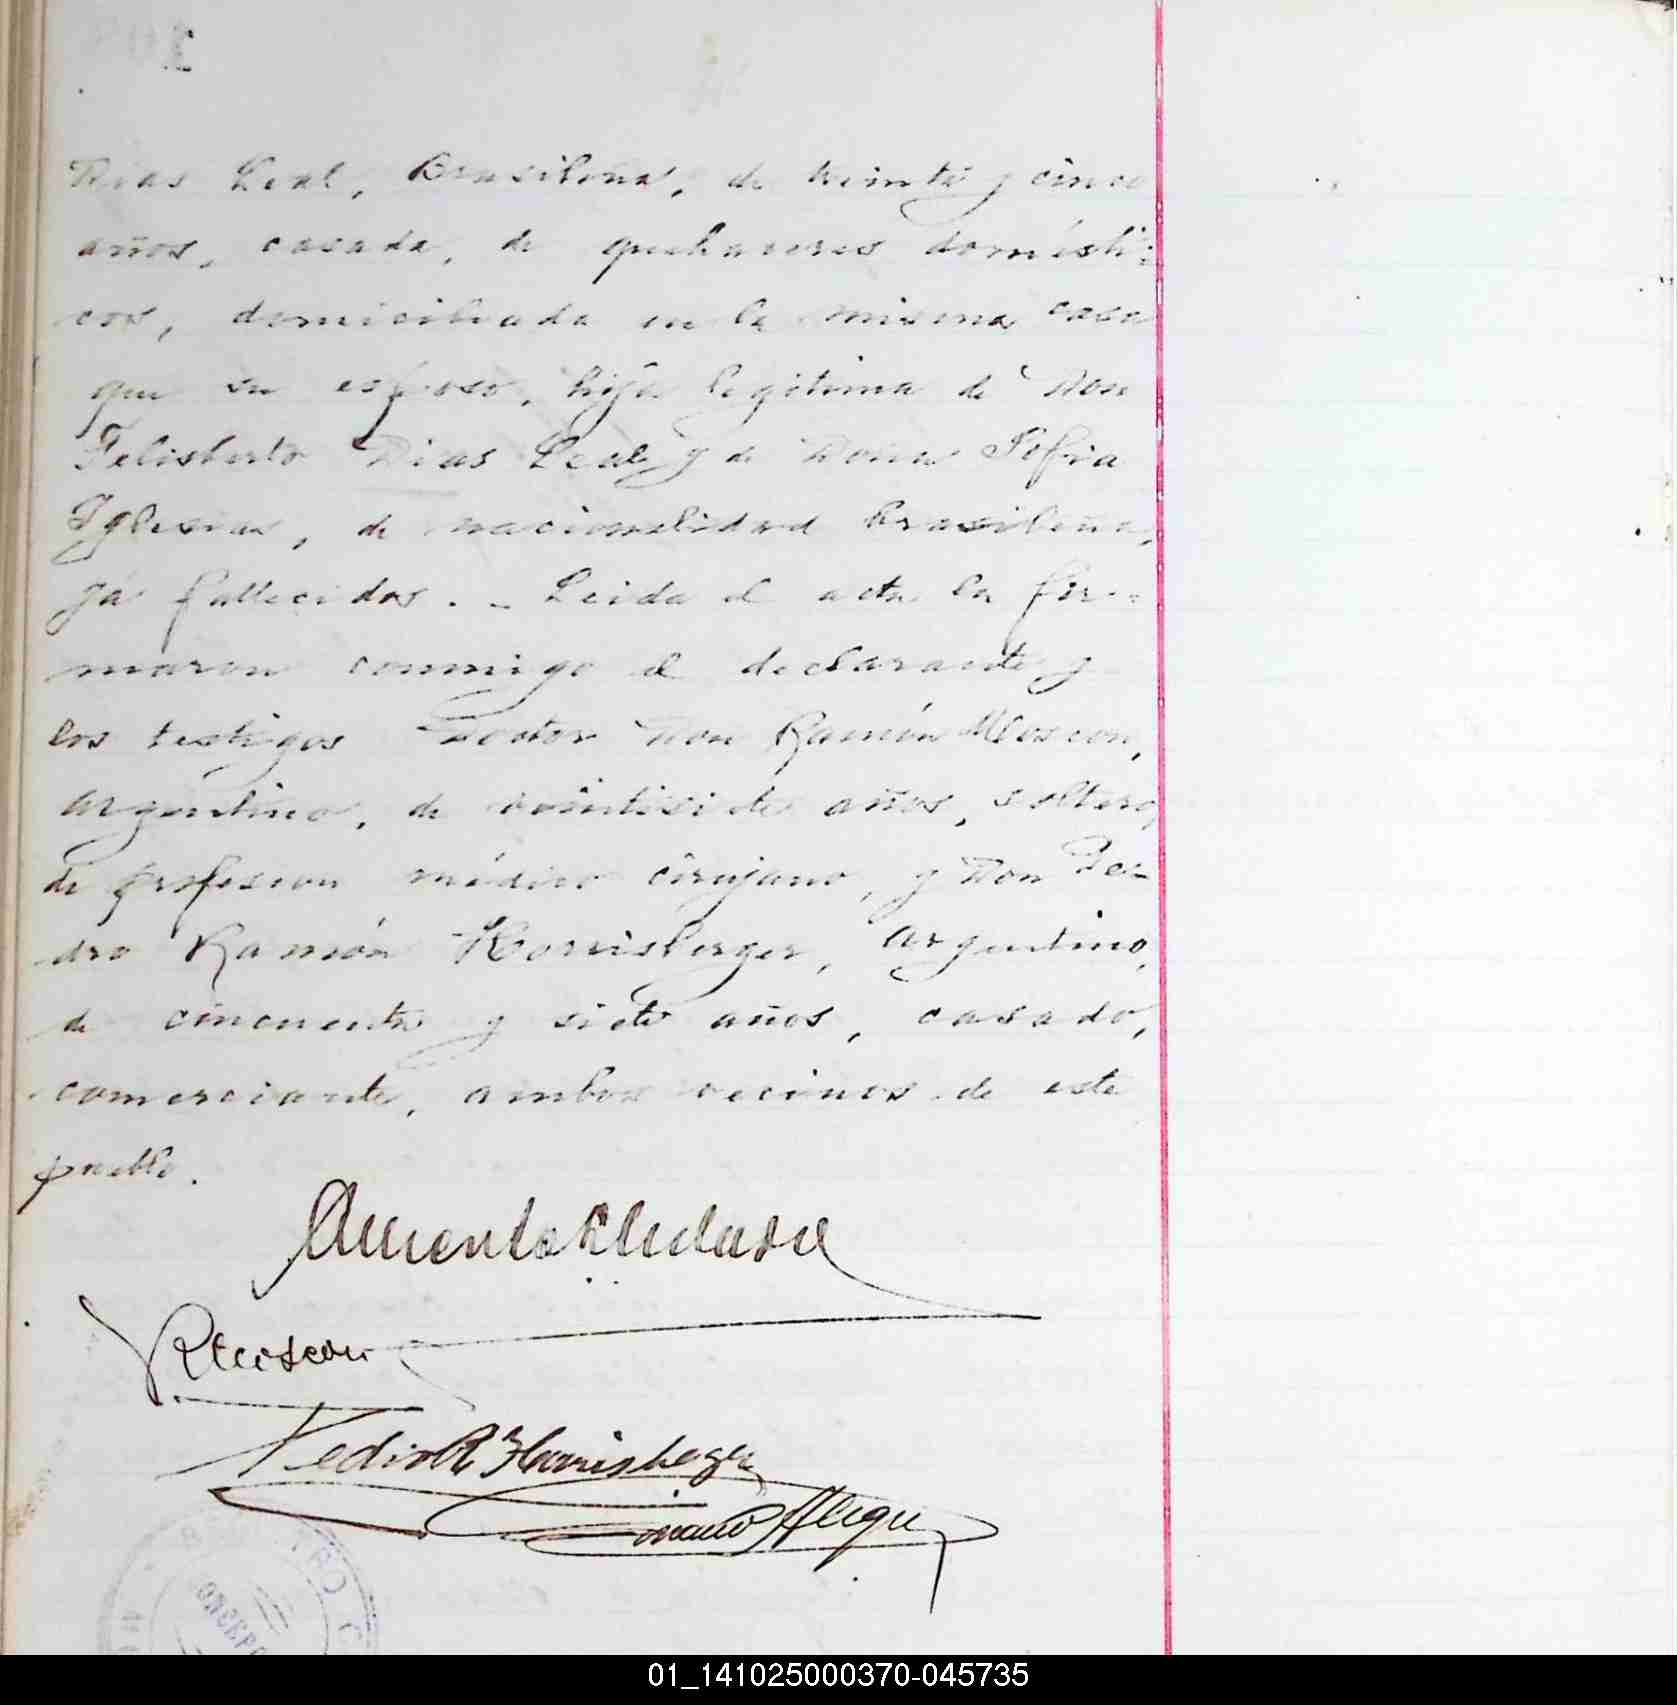 Dias Leal, Brasileña, de treinta y cinco
años, casada, de quehaceres domésti-
cos, domiciliada en la misma casa
que su esposo, hija legitima de Don
Felisberto Dias Leal y de Doña Sofia
Iglesias, de nacionalidad brasileña,
ya fallecidos. - Leida el acta la fir-
maron conmigo el declarante y
los testigos Doctor Don Ramón
argentino, de veintisiete años, soltero,
de profesion médico cirujano, y Don Pe-
dro Ramón Harrisberger, argentino,
de cincuenta y siete años, casado,
comerciante, ambos vecinos de este
pueblo.
Pedro R Harrisberger
01_141025000370-045735